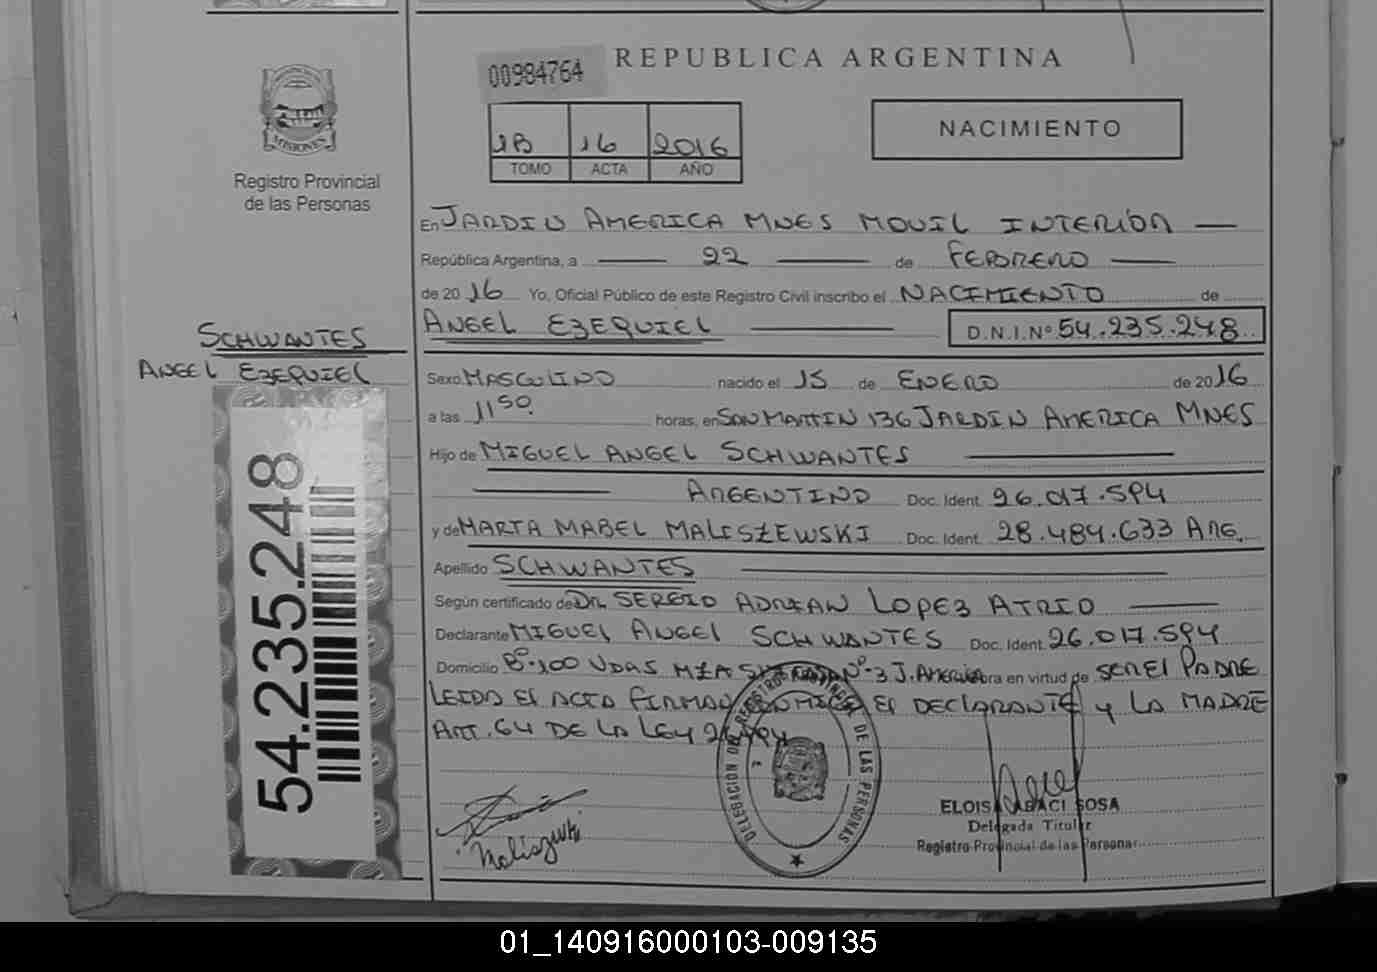 REPUBLICA ARGENTINA
00984764
1B 16 2016
TOMO ACTA AÑO
NACIMIENTO
MISIONES
Registro Provincial
de las Personas
En JARDIN AMERICA MNES MOVIL INTERIOR
República Argentina, a 22 de FEBRERO
de 2016 Yo, Oficial Público de este Registro Civil inscribo el NACIMIENTO de
ANGEL EZEQUIEL D.N.I.Nº 54.235.248
SCHWANTES
ANGEL EZEQUIEL
Sexo MASCULINO nacido el 15 de ENERO de 2016
a las 11 50 horas, en SAN MARTIN 136 JARDIN AMERICA MNES
Hijo de MIGUEL ANGEL SCHWANTES
ARGENTINO Doc. Ident. 26.017.594
y de MARTA MABEL MALISZEWSKI Doc. Ident. 28.484.633 ARG.
Apellido SCHWANTES
Según certificado de DR. SERGIO ADRIAN LOPEZ ATRIO
Declarante MIGUEL ANGEL SCHWANTES Doc. Ident. 26.017.594
Domicilio Bº-100 VDAS MZA Nº-3 J. AMERICA obra en virtud de SER EL PADRE
LEIDA EL ACTA FIRMAN CONMIGO EL DECLARANTE Y LA MADRE
ART. 64 DE LA LEY 26.994
54.235.248
DELEGACION DEL REGISTRO PROVINCIAL DE LAS PERSONAS
Maliszewski
ELOISA ABACI SOSA
Delegada Titular
Registro Provincial de las Personas
01_140916000103-009135